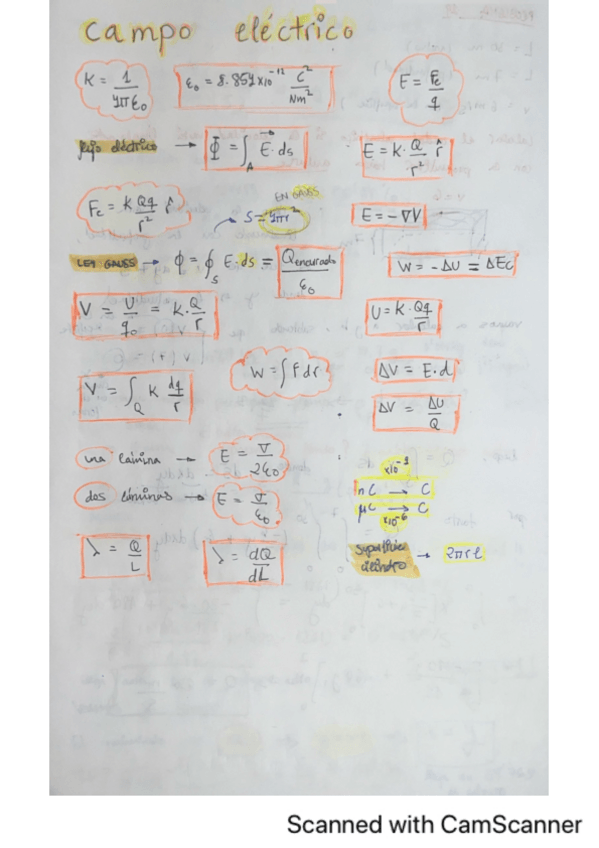 Campo eléctrico
K = 1/4πε₀   ε₀ = 8.854×10⁻¹² C²/Nm²   E = Fc/q
flujo eléctrico → Φ = ∫_A E⃗·ds   E = K·Q/r² r̂
EN GAUSS
Fc = K Qq/r² r̂   S = 4πr²   E = -∇V
LEY GAUSS → Φ = ∮_S E·ds = Qencerrada/ε₀   W = -ΔU = ΔEc
V = U/q₀ = K·Q/r   U = K·Qq/r
W = ∫F dr   ΔV = E·d
V = ∫_Q K dq/r   ΔV = ΔU/Q
una lámina → E = σ/2ε₀
×10⁻⁹
dos láminas → E = σ/ε₀   nC → C
μC → C
×10⁻⁶
λ = Q/L   λ = dQ/dL   superficie cilindro → 2πrl
Scanned with CamScanner